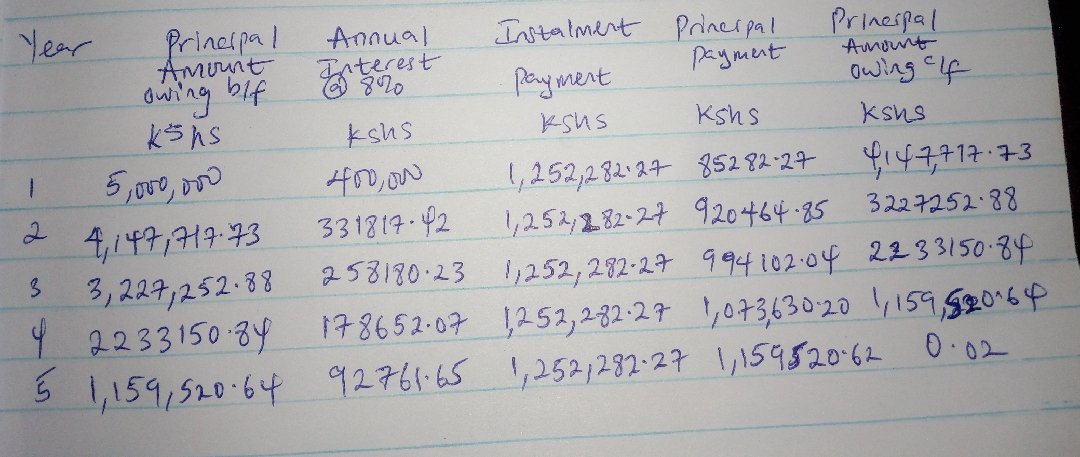 Year Principal Annual Instalment Principal Principal
Amount Interest payment payment Amount
owing b/f @ 8% owing c/f
kshs kshs kshs kshs kshs
1 5,000,000 400,000 1,252,282.27 85282.27 4,147,717.73
2 4,147,717.73 331817.42 1,252,282.27 920464.85 3227252.88
3 3,227,252.88 258180.23 1,252,282.27 994102.04 2233150.84
4 2233150.84 178652.07 1,252,282.27 1,073,630.20 1,159,520.64
5 1,159,520.64 92761.65 1,252,282.27 1,159520.62 0.02